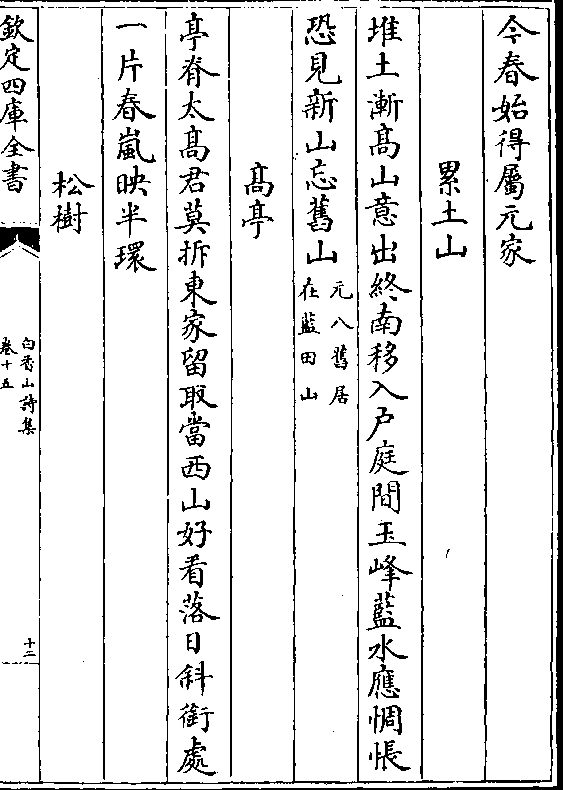 今春始得屬元家
累土山
堆土漸髙山意出終南移入戶庭間玉峰藍水應惆悵
恐見新山忘舊山元八舊居
在藍田山
髙亭
亭脊太髙君莫拆東家留取當西山好看落日斜銜處
一片春嵐映半環
松樹
欽定四庫全書
白香山詩集
卷十五
十二